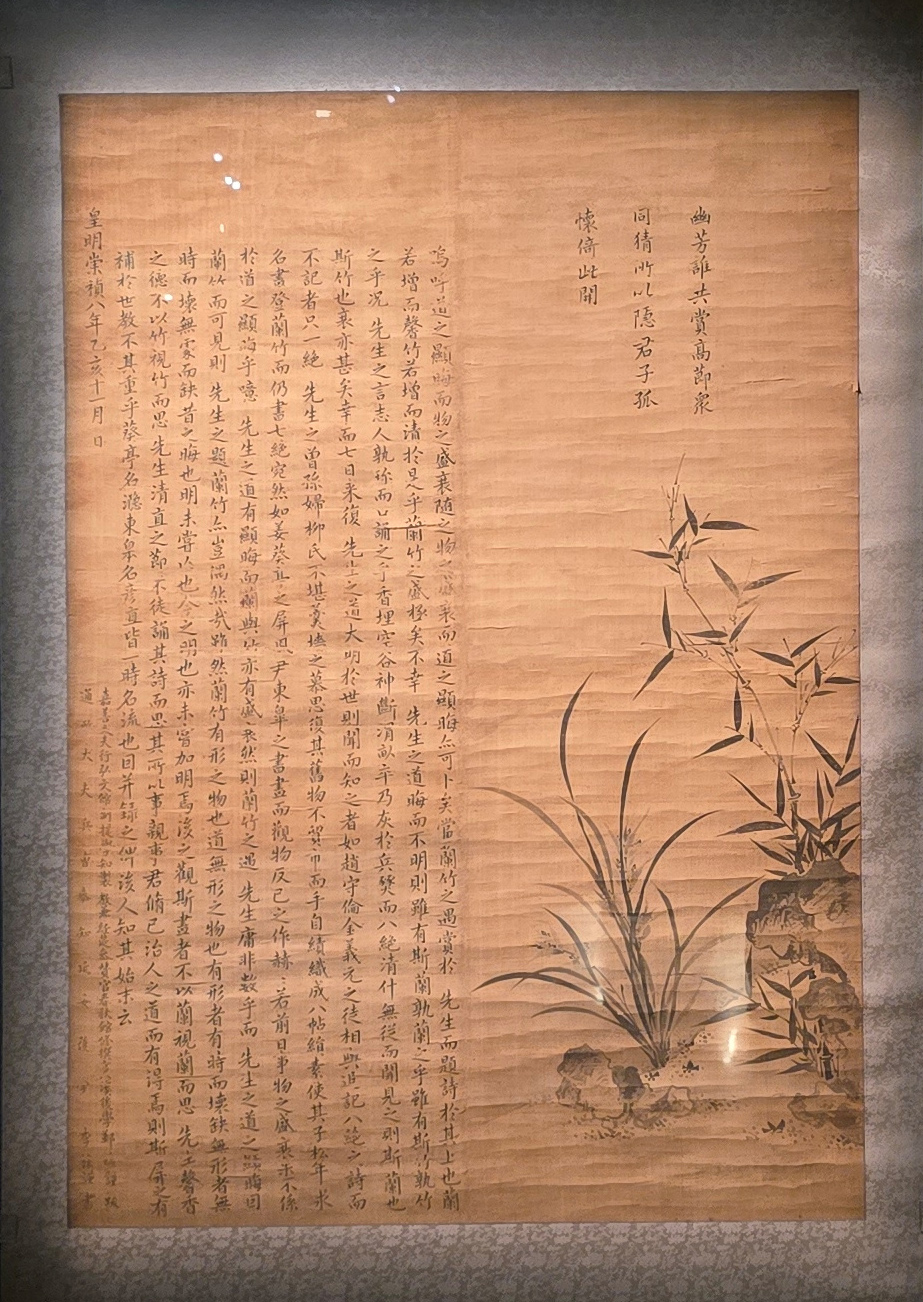 幽芳誰共賞高節衆
同猜所以隱君子孤
懷倚此開
嗚呼道之顯晦而物之盛衰隨之物之盛衰而道之顯晦亦可卜矣當蘭竹之遇賞於 先生而題詩於其上也蘭
若增而馨竹若增而清於是乎蘭竹之盛極矣不幸 先生之道晦而不明則雖有斯蘭孰蘭之乎雖有斯竹孰竹
之乎况 先生之言志人孰称而口誦之乎香埋空谷神斷渭畝卒乃灰於兵燹而八絶清什無從而聞見之則斯蘭也
斯竹也衰亦甚矣幸而七日来復 先生之道大明於世則聞而知之者如趙守倫金義元之徒相與追記八絶之詩而
不記者只一絶 先生之曾孫婦柳氏不堪羹墻之慕思復其舊物不貿市而手自績織成八帖絹素使其子松年求
名書登蘭竹而仍書七絶宛然如姜葵亭之屏與尹東皐之書畫而觀物反己之作赫〻若前日事物之盛衰不係
於道之顯晦乎噫 先生之道有顯晦而蘭與竹亦有盛衰然則蘭竹之遇 先生庸非數乎而 先生之道之顯晦因
蘭竹而可見則 先生之題蘭竹亦豈偶然哉雖然蘭竹有形之物也道無形之物也有形者有時而壊缺無形者無
時而壊無處而缺昔之晦也明未嘗亡也今之明也亦未嘗加明焉後之觀斯畫者不以蘭視蘭而思 先生馨香
之德不以竹視竹而思 先生清直之節不徒誦其詩而思其所以事親事君脩己治人之道而有得焉則斯屏之有
補於世教不其重乎葵亭名 東皐名彦直皆一時名流也因并録之俾後人知其始末云
嘉善大夫行弘文館副提學知製教兼 春秋館修撰官 後學鄭 跋
皇明崇禎八年乙亥十一月 日
通政大夫兵曹參知 李 書